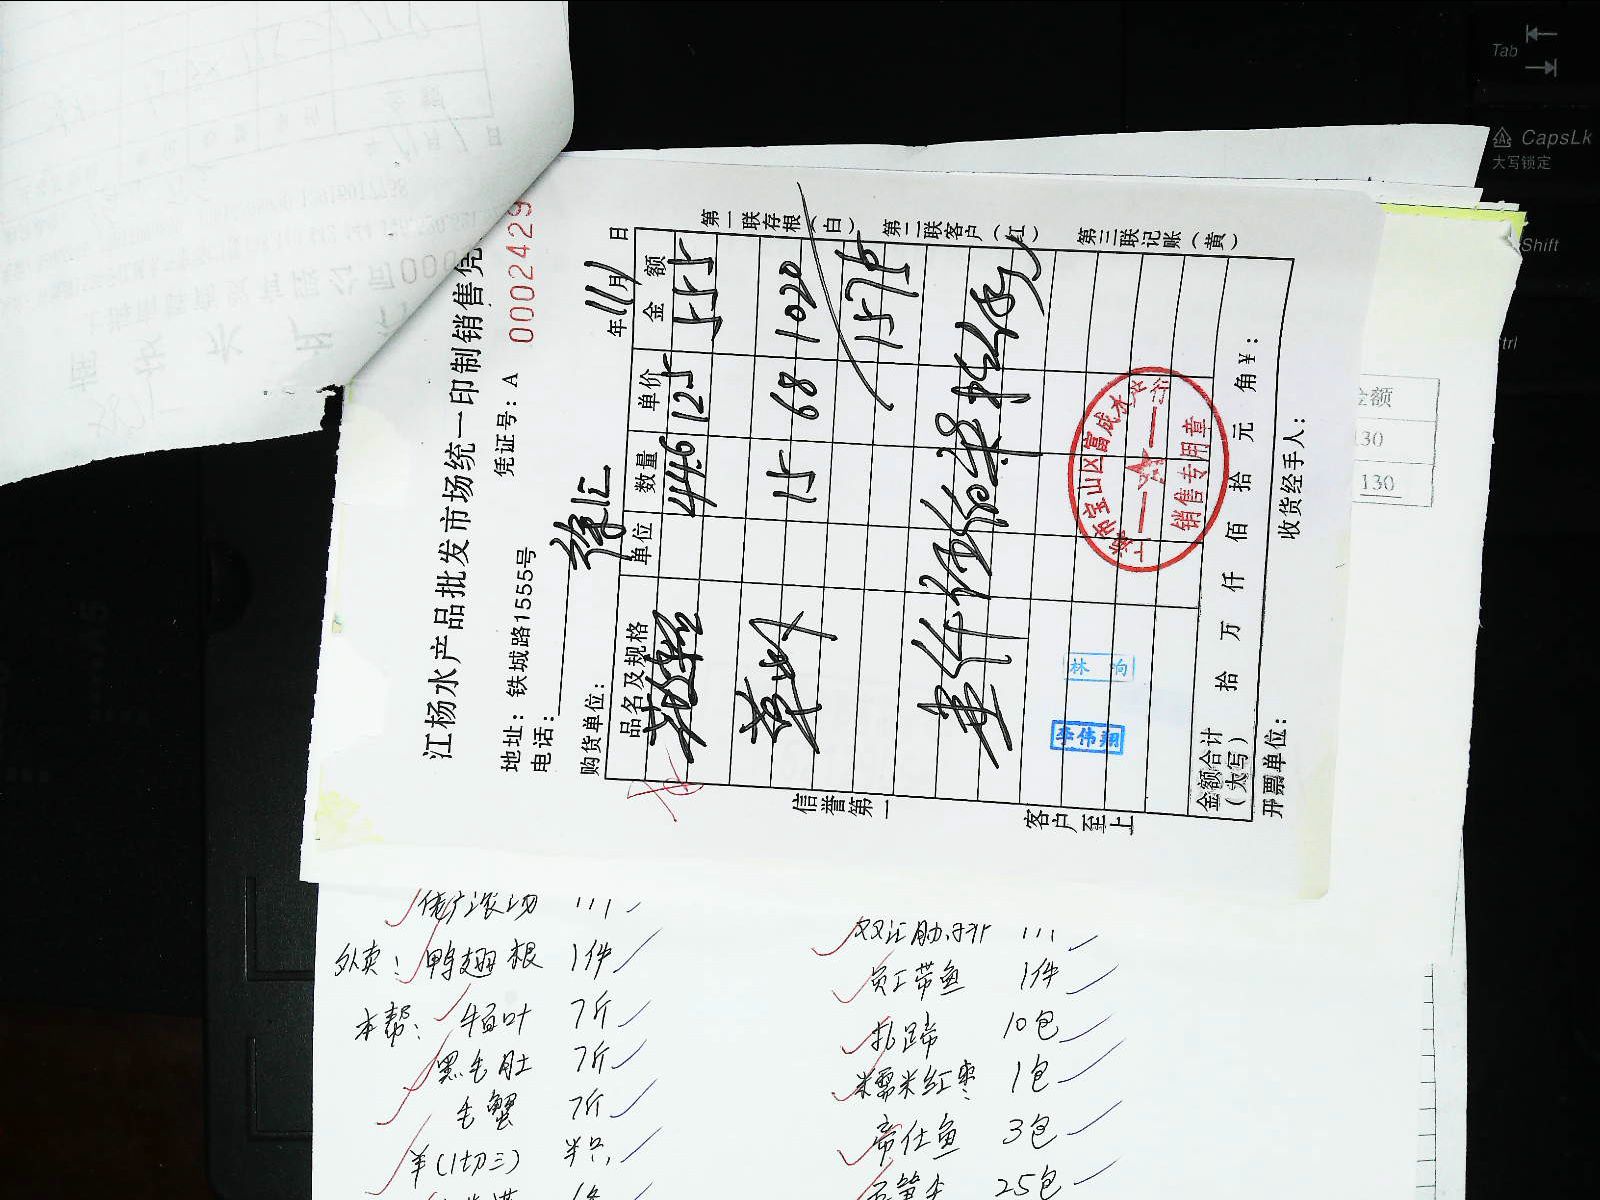 江杨水产品批发市场统一印制销售凭
地址：铁城路1555号
凭证号：A 0002429
电话：
徐汇
购货单位：
年11月 日
品名及规格 单位 数量 单价 金额
446 125 555
草虾 15 68 1020
1575
壹仟伍佰柒拾伍元
金额合计（大写） 拾 万 仟 佰 拾 元 角 ¥：
开票单位：
收货经手人：
第一联存根（白）
第二联客户（红）
第三联记账（黄）
信誉第一
客户至上
宝山区富成水产
销售专用章
林 向
李伟翔
金额
130
130
外卖：鸭翅根 1件
本帮：牛百叶 7斤
黑毛肚 7斤
毛蟹 7斤
羊（1切三） 半只
双汇肋排
员工带鱼 1件
扎蹄 10包
糯米红枣 1包
帝仕鱼 3包
25包
Tab
CapsLk
大写锁定
Shift
trl